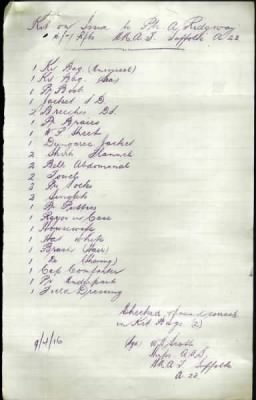 Kit on Issue to Pte A Ridgway
H.M.A.T. Suffolk A 22
1 Kit Bag (Universal)
1 Kit Bag. Sea
1 Pr Boots
1 Jacket S D.
2 Breeches Dt.
1 Pr Braces
1 W P Sheet
1 Dungaree Jacket
2 Shirts Flannel
2 Belts Abdominal
2 Towels
3 Prs Socks
2 Singlets
1 Pr Putties
1 Razor in Case
1 Housewife
1 Hat White
1 Brush (Hair)
1 Do (Shaving)
1 Cap Comforter
1 Pr Underpants
1 Field Dressing
Checked
in Kit Bags (2)
9/4/16
Sgd.
H.M.A.T. Suffolk
A 22.